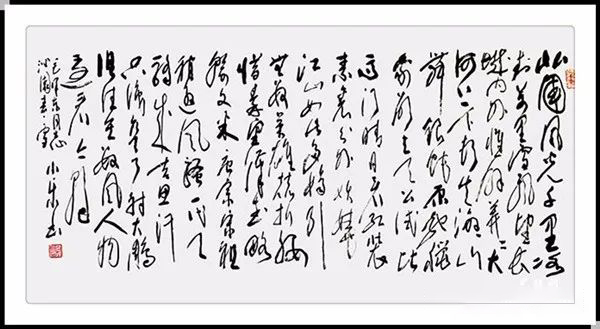 北國風光千里冰
封万里雪飘望长
城内外惟余莽〻大
河上下顿失滔〻山
舞银蛇原驰蜡
象欲与天公试比
高须晴日看红装
素裹分外妖娆
江山如此多娇引
无数英雄竞折腰
惜秦皇汉武略
输文采唐宗宋祖
稍逊风骚一代天
骄成吉思汗
只识弯弓射大雕
俱往矣数风流人物
还看今朝
毛泽东同志
沁园春雪 小
书